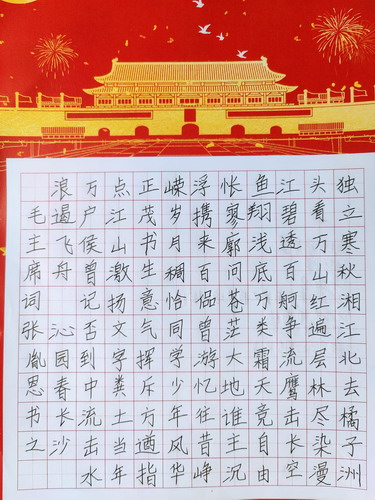 独立寒秋湘江北去橘子洲
头看万山红遍层林尽染漫
江碧透百舸争流鹰击长空
鱼翔浅底万类霜天竞自由
怅寥廓问苍茫大地谁主沉
浮携来百侣曾游忆往昔峥
嵘岁月稠恰同学少年风华
正茂书生意气挥斥方遒指
点江山激扬文字粪土当年
万户侯曾记否到中流击水
浪遏飞舟 沁园春长沙
毛主席词张胤恩书之